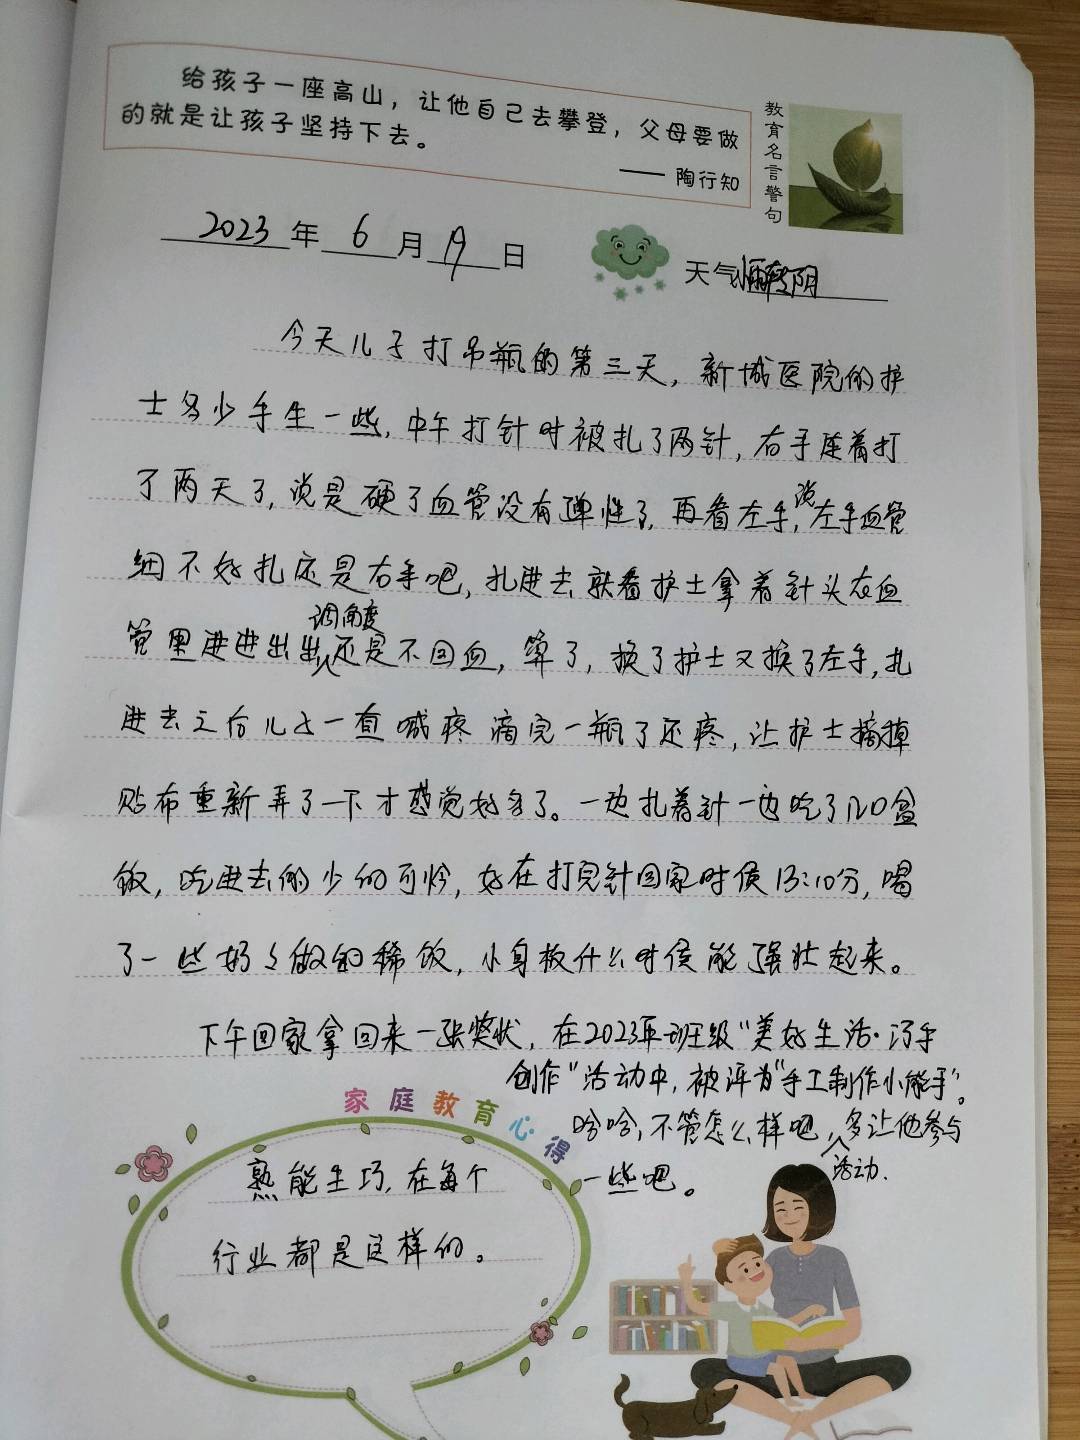 给孩子一座高山，让他自己去攀登，父母要做
的就是让孩子坚持下去。
—— 陶行知
教育名言警句
2023年 6 月 19 日
天气 小雨转阴
今天儿子打吊瓶的第三天，新城医院的护
士多少手生一些，中午打针时被扎了两针，右手连着打
了两天了，说是硬了血管没有弹性了，再看左手，说左手血管
细不好扎还是右手吧，扎进去就看护士拿着针头在血
管里进进出出调角度还是不回血，算了，换了护士又换了左手，扎
进去之后儿子一直喊疼 滴完一瓶了还疼，让护士摘掉
贴布重新弄了一下才感觉好多了。一边扎着针一边吃了几口盒
饭，吃进去的少的可怜，好在打完针回家时侯13:10分，喝
了一些奶奶做的稀饭，小身板什么时侯能强壮起来。
下午回家拿回来一张奖状，在2023年班级“美好生活·巧手
创作”活动中，被评为“手工制作小能手”。
哈哈，不管怎么样吧，多让他参与活动
一些吧。
家庭教育心得
熟能生巧，在每个
行业都是这样的。